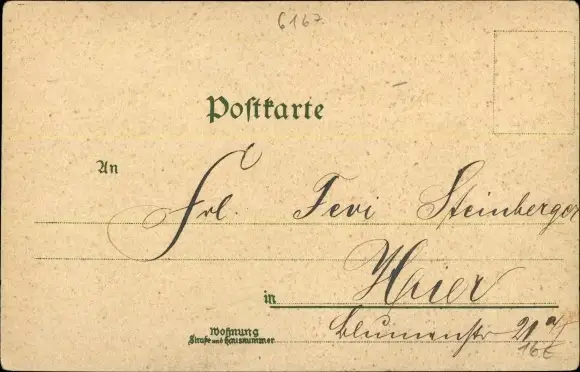 6167
Postkarte
An
Frl. Fevi Steinberger
in Haier
Wohnung
Straße und Hausnummer
Blumenstr 21 a/
16€